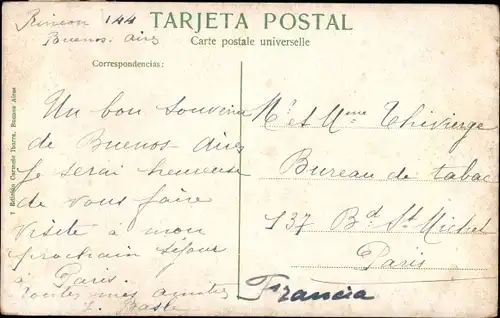 Rincon 144
Buenos-Aires
TARJETA POSTAL
Carte postale universelle
Correspondencias:
Un bon souvenir
de Buenos-Aires
Je serai heureuse
de vous faire
visite à mon
prochain séjour
à Paris.
Toutes mes amitiés
Mr et Mme Thivierge
Bureau de tabac
137 Bd St Michel
Paris
Francia
Carmelo Ibarra, Buenos Aires